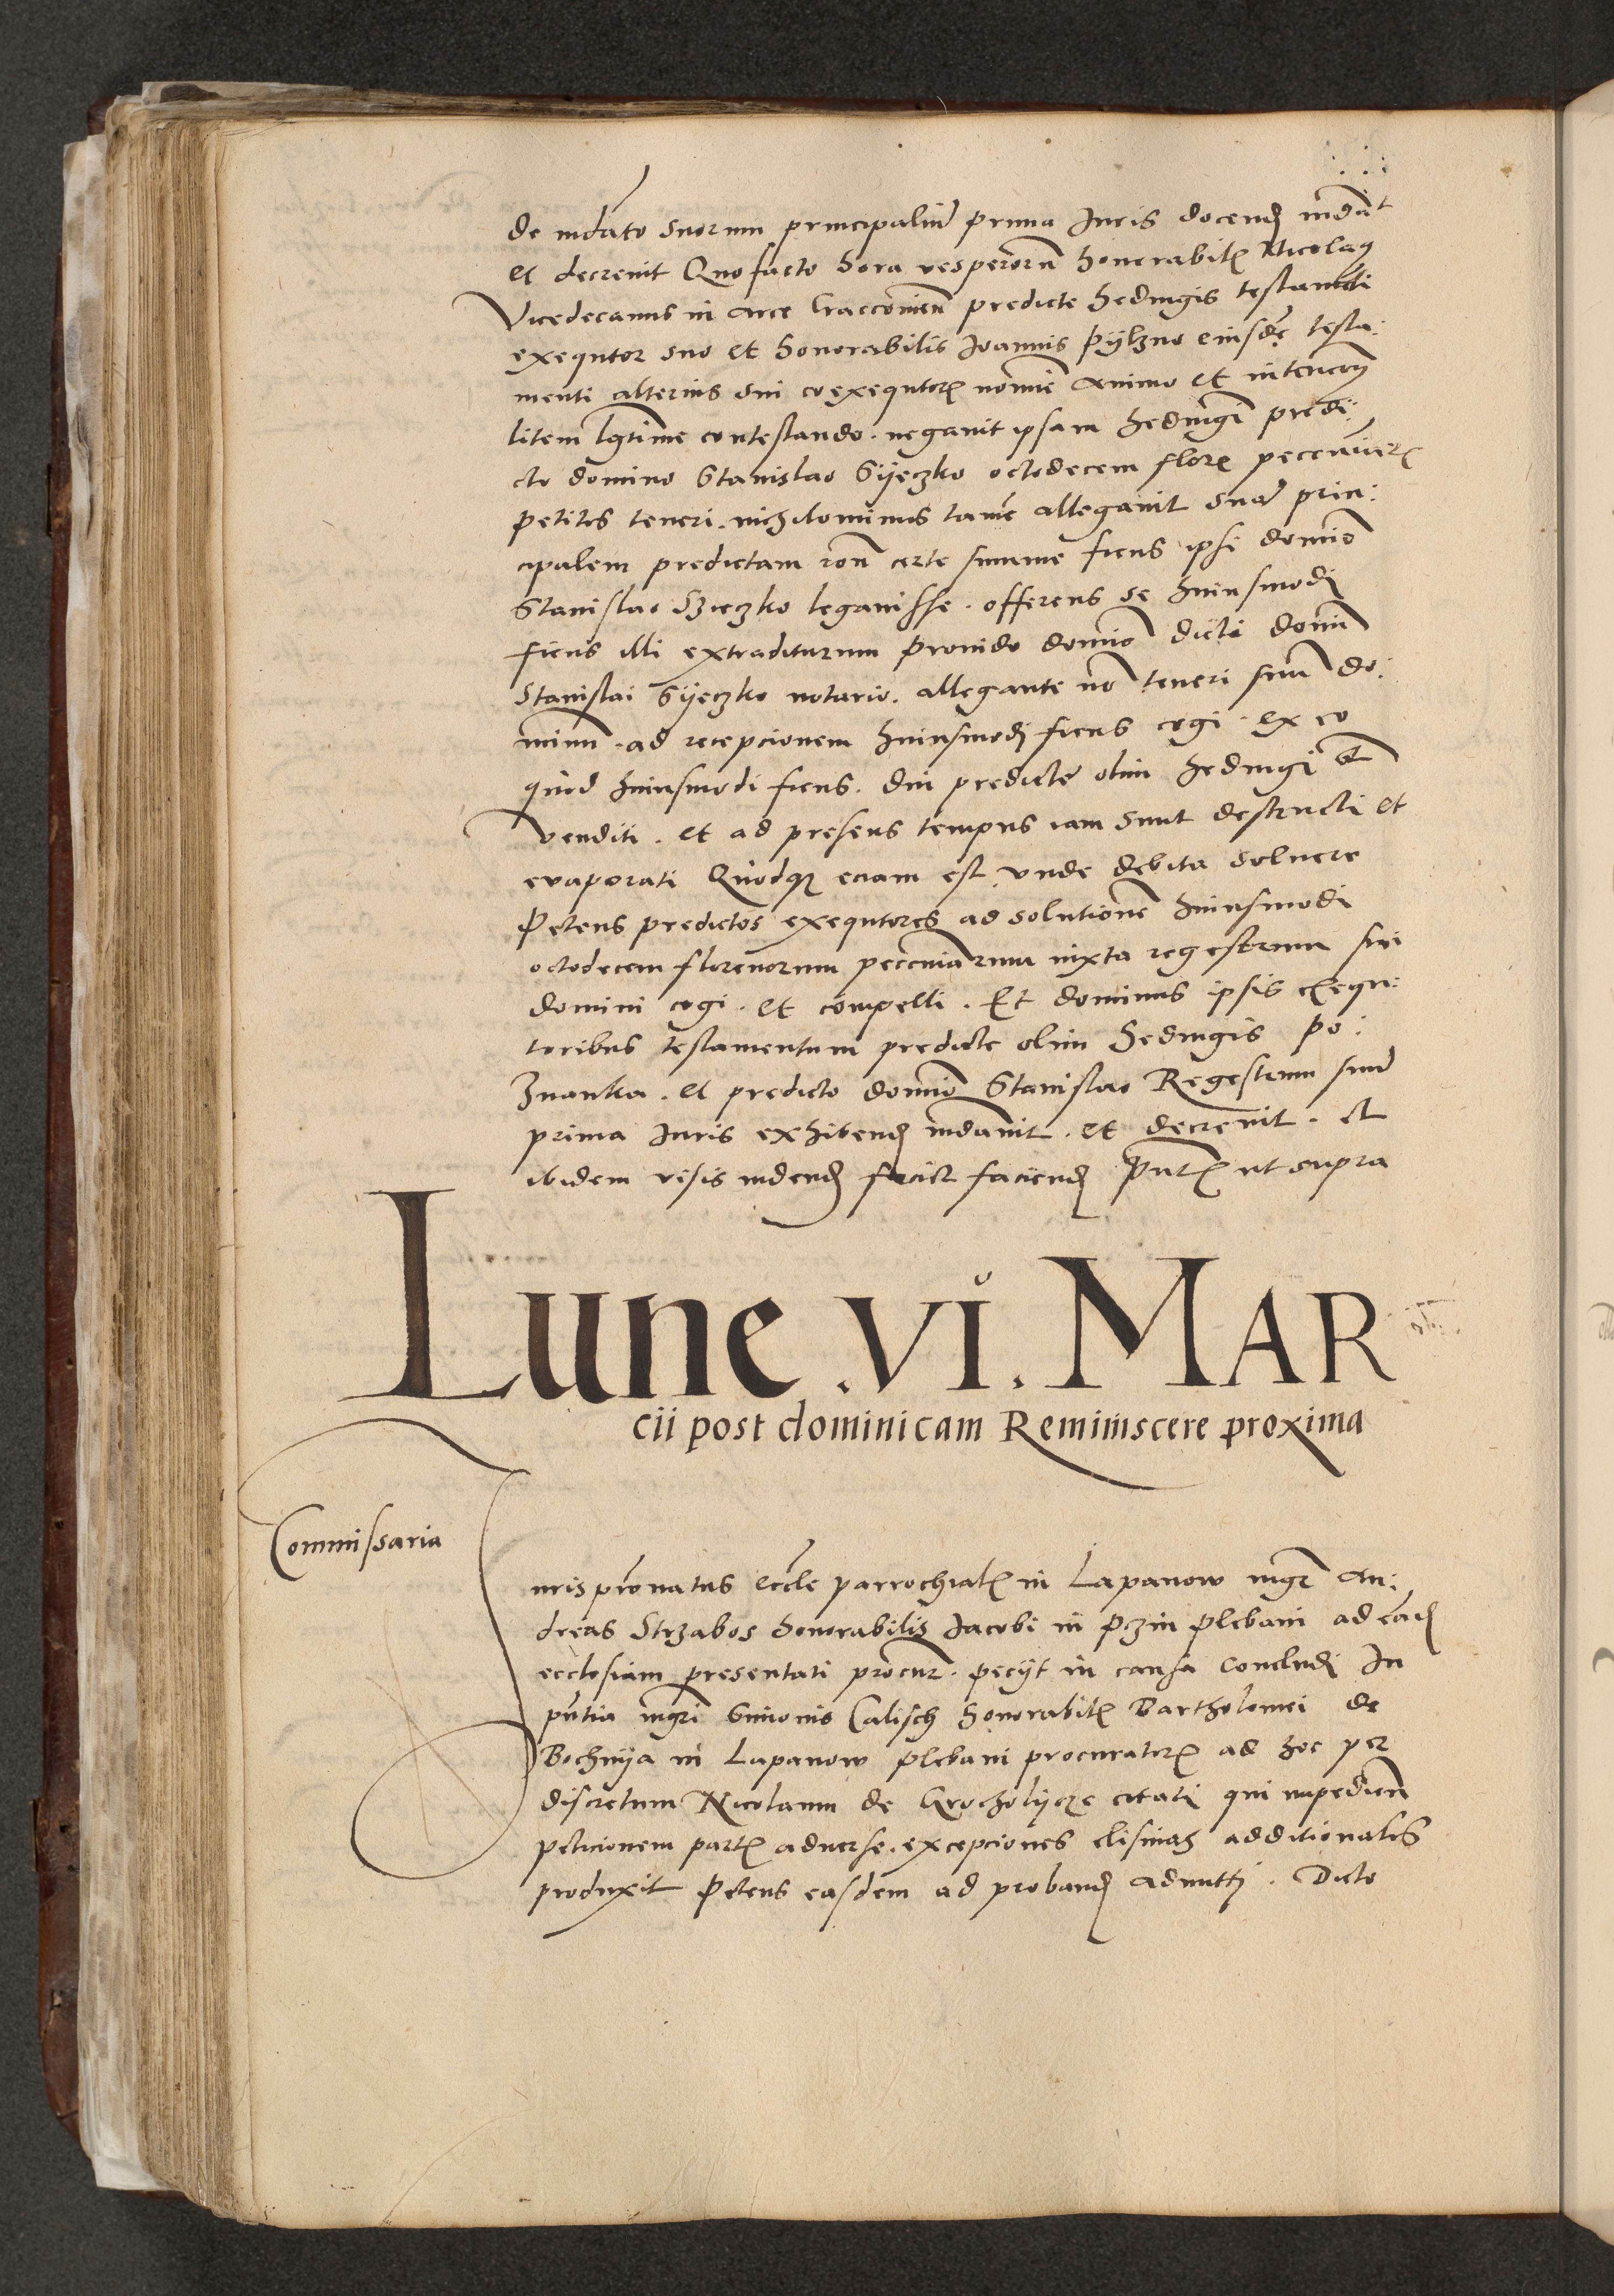 de mdato suorum principaliu prima Iuris docend mdat
et decrevit Quo facto hora vesperoru honorabil Nicolaus
Vicedecanus in arce Cracovien predicte Hedvigis testamenti
exequtor suo et honorabilis Ioannis Pylzno eiusde testa:
menti alterius sui coexequtor nomine animo et intencon
litem lgtime contestando. negavit ipsam Hedvigim predi:
cto domino Stanislao Gyeczko octodecem floren pecuniar
petitos teneri. nichilominus tame allegavit sua prin:
cipalem predictam ron certe summe ficus ipsi domino
Stanislao Gyeczko legavisse. offerens se huiusmodi
ficus illi extraditurum Provido domino dicti domini
Stanislai Gyeczko notario. allegante no teneri suu do:
minu. ad recepcionem huiusmodi ficus cogi. ex eo
quod huiusmodi ficus. diu predicte olim Hedvigi
venditi. et ad presens tempus iam sunt destructi et
evaporati Quodque eciam est vnde debita solvere
Petens predictos exequtores ad solutione huiusmodi
octodecem florenorum pecuniarum iuxta regestrum sui
domini cogi. et compelli. Et dominus ipsis exequ:
toribus testamentum predicte olim Hedvigis Po:
znanka. et predicto domino Stanislao Regestrum suu
prima Iuris exhibend mdavit. et decrevit. et
ibidem visis vidend faciet faciend Pntib ut supra
Lune .VI. MAR
cii post dominicam Reminiscere proxima
Commissaria
Iuris pronatus eccle parrochial in Lapanow mgr An:
dreas Strzabos honorabilis Iacobi in Pzin Plebani ad eand
ecclesiam presentati procur. peciit in causa concludi In
pntia mgri Simonis Calisch honorabil Bartholomei de
Bochnya in Lapanow plebani procurator ad hoc per
discretum Nicolaum de Grocholycze citati qui impedien
peticionem part adverse. excepciones elisivas additionales
produxit Petens easdem ad proband admitti. Dicto